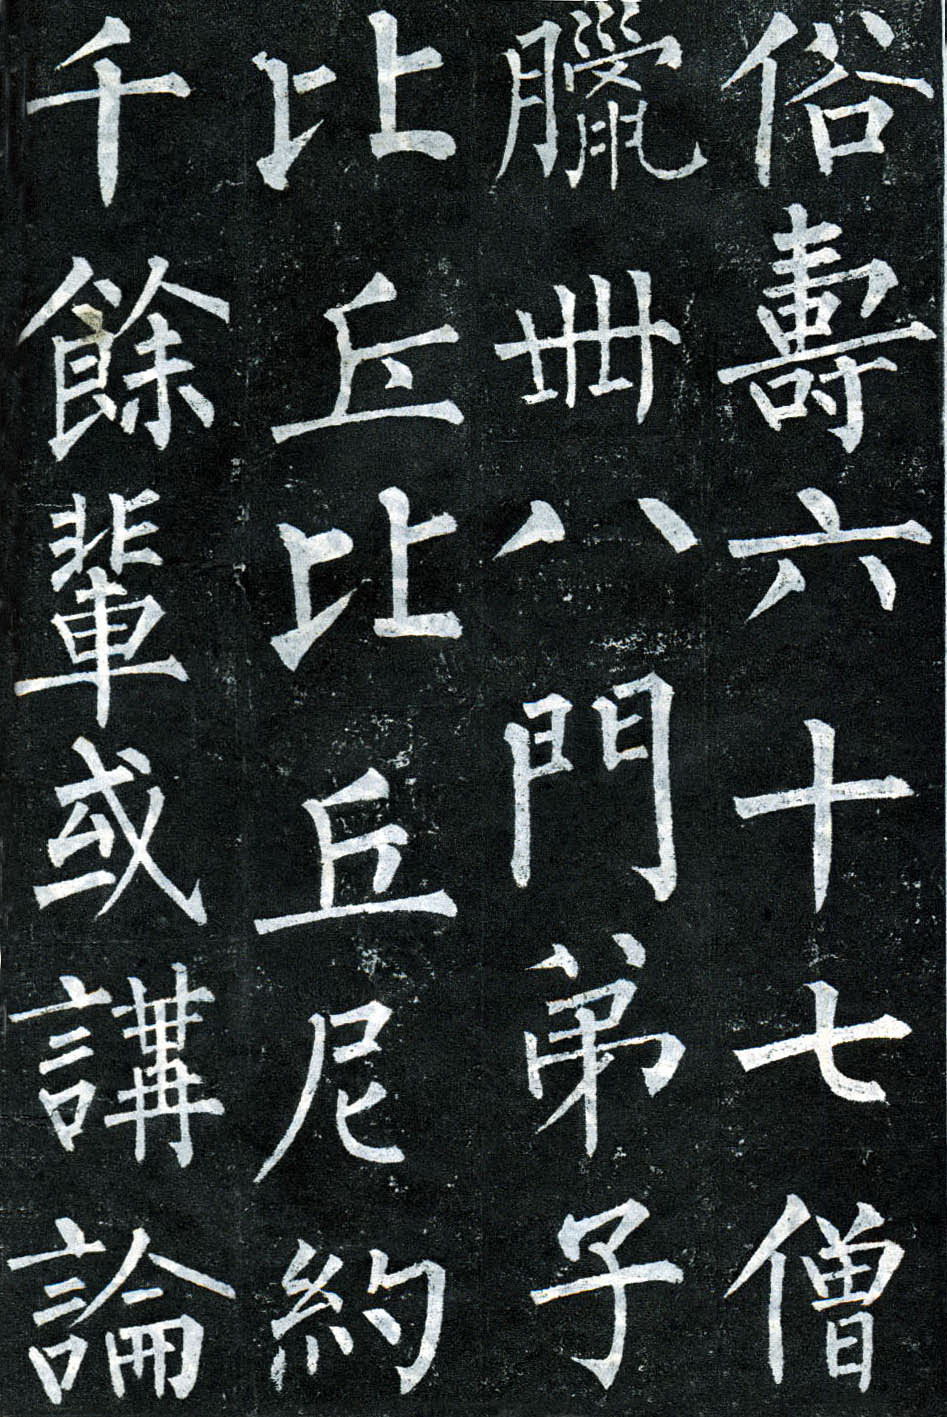 俗壽六十七僧
臘卌八門弟子
比丘比丘尼約
千餘輩或講論